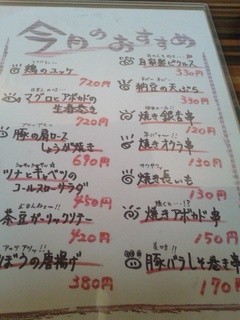 今月のおすすめ
鶏のユッケ
720円
マグロとアボカドの
生春巻き
720円
豚の肩ロース
しょうが焼き
690円
ツナとキャベツの
コールスローサラダ
450円
茶豆ガーリックソテー
420円
ぼうの唐揚げ
380円
自家製ピクルス
330円
納豆の天ぷら
330円
焼き銀杏串
120円
焼きオクラ串
130円
焼き長いも
130円
焼きアボカド串
150円
豚バラしそ巻き串
170円